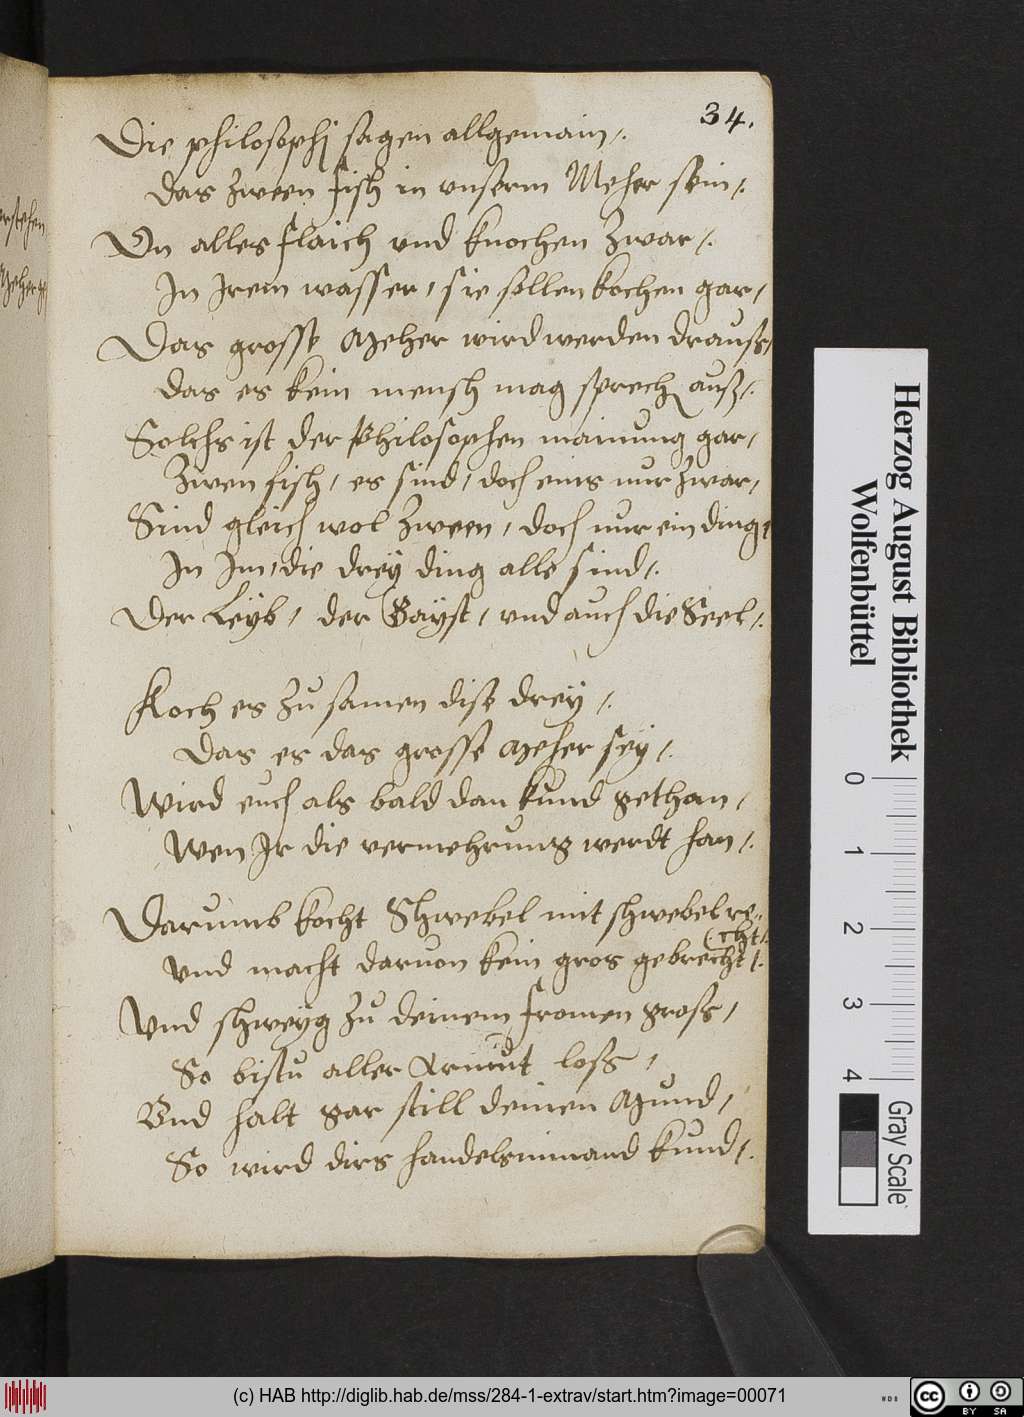 34.
Die philosophj sagen allgemain /.
das zween fisch in vnserm Meher sein /.
On alles flaich vnd knochen zwar /.
In Irem wasser / sie sollen kochen gar /
Das grosse Meher wird werden drauß /
das es kein mensch mag sprech auß /.
Solchs ist der Philosophen mainung gar /
Zwen fisch / es sind / doch eins nur zwar /
Sind gleich wol zween / doch nur ein ding /
In Im / die drey ding alle sind /.
Der Leyb / der Gayst / vnd auch die Seel /.
Koch es zu samen dise drey /.
Das es das grosse Meher sey /.
Wird euch als bald dan kund gethan /
Wen Ir die vermehrung werdt han /.
Darumb kocht Schwebel mit schwebel re-
(: cht /.
vnd macht daruon kein gros gebrecht /.
Vnd schweyg zu deinem fromen gross /
So bistu aller Armut loss /
Vnd halt gar still deinen Mund /
So wird dirs handels nimand kund /.
erstehen
Meher
Herzog August Bibliothek
Wolfenbüttel
0 1 2 3 4
Gray Scale
(c) HAB http://diglib.hab.de/mss/284-1-extrav/start.htm?image=00071
WDB
cc BY SA